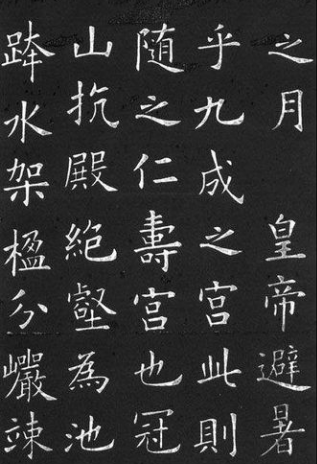 之月 皇帝避暑
乎九成之宫此則
随之仁壽宫也冠
山抗殿絶壑為池
跨水架楹分巗竦